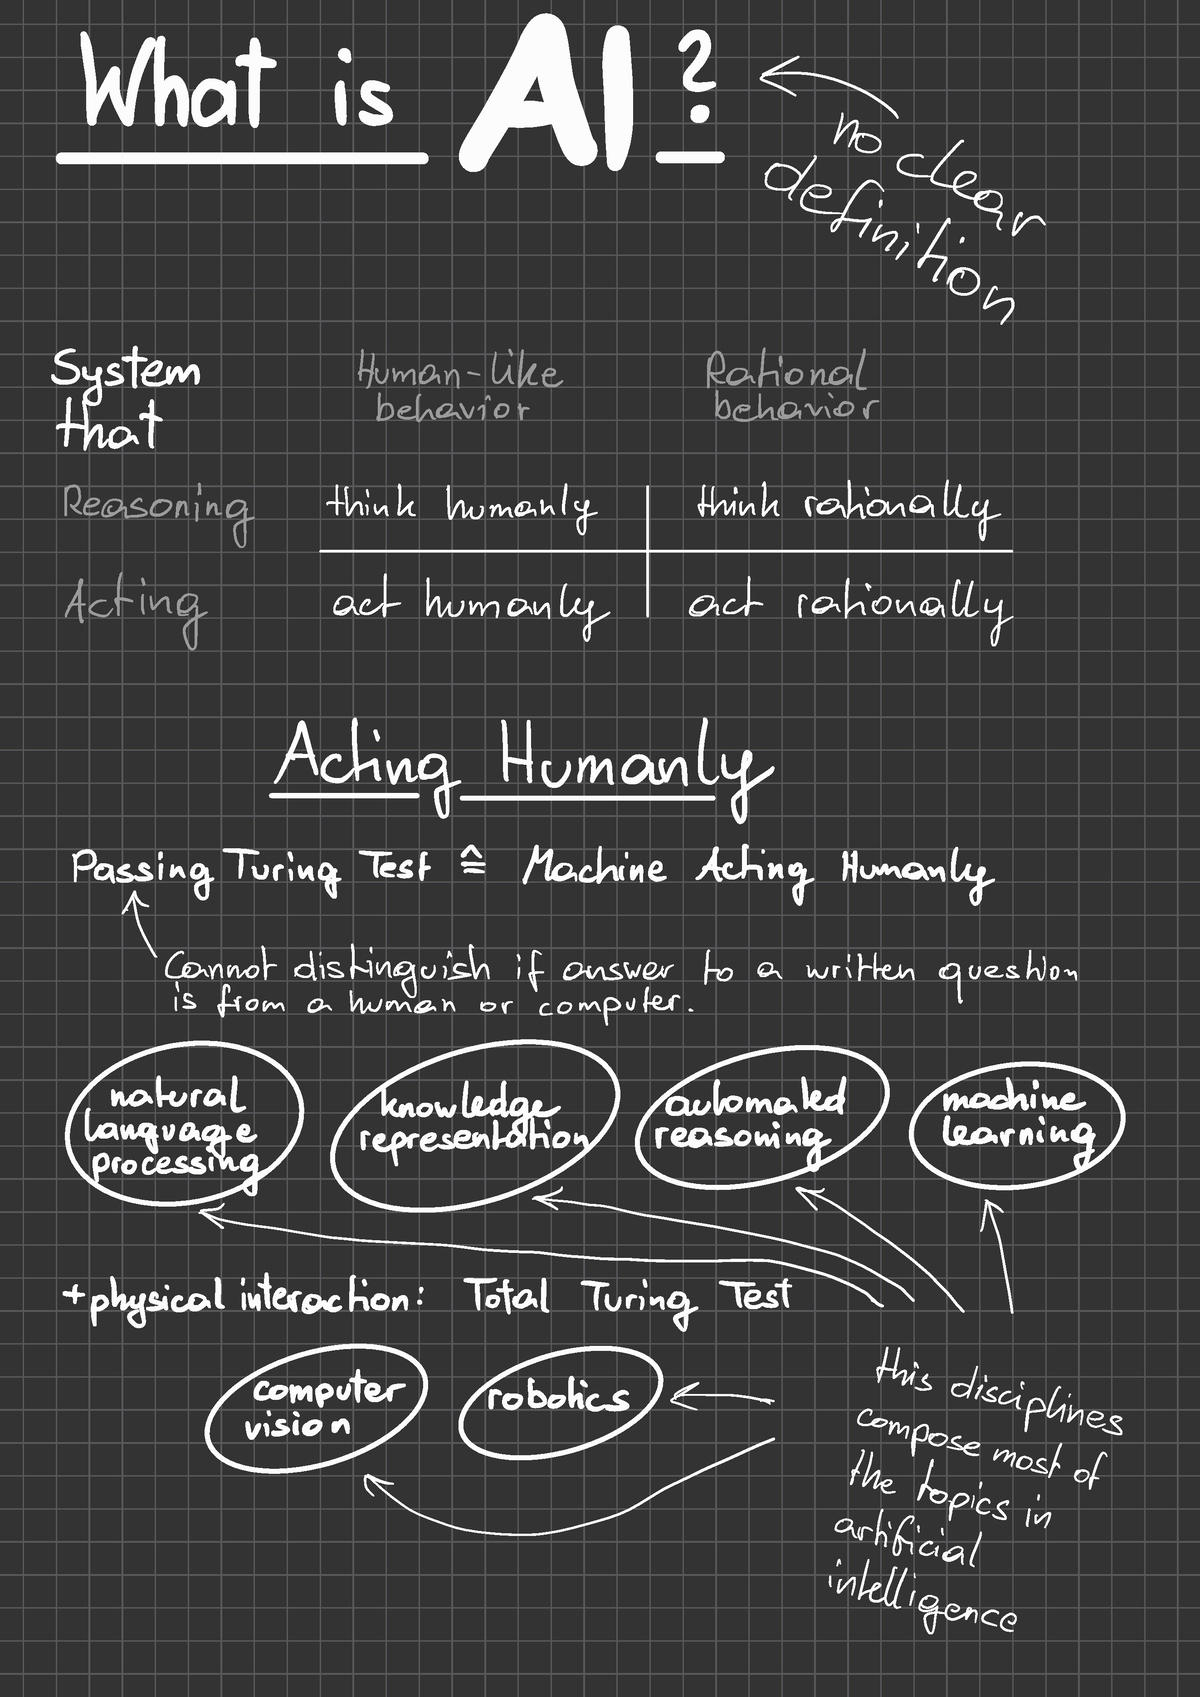 What is AI?
no clear
definition
System
that
Human-like
behavior
Rational
behavior
Reasoning
think humanly
think rationally
Acting
act humanly
act rationally
Acting Humanly
Passing Turing Test ≙ Machine Acting Humanly
Cannot distinguish if answer to a written question
is from a human or computer.
natural
language
processing
knowledge
representation
automated
reasoning
machine
learning
+physical interaction: Total Turing Test
computer
vision
robotics
this disciplines
compose most of
the topics in
artificial
intelligence